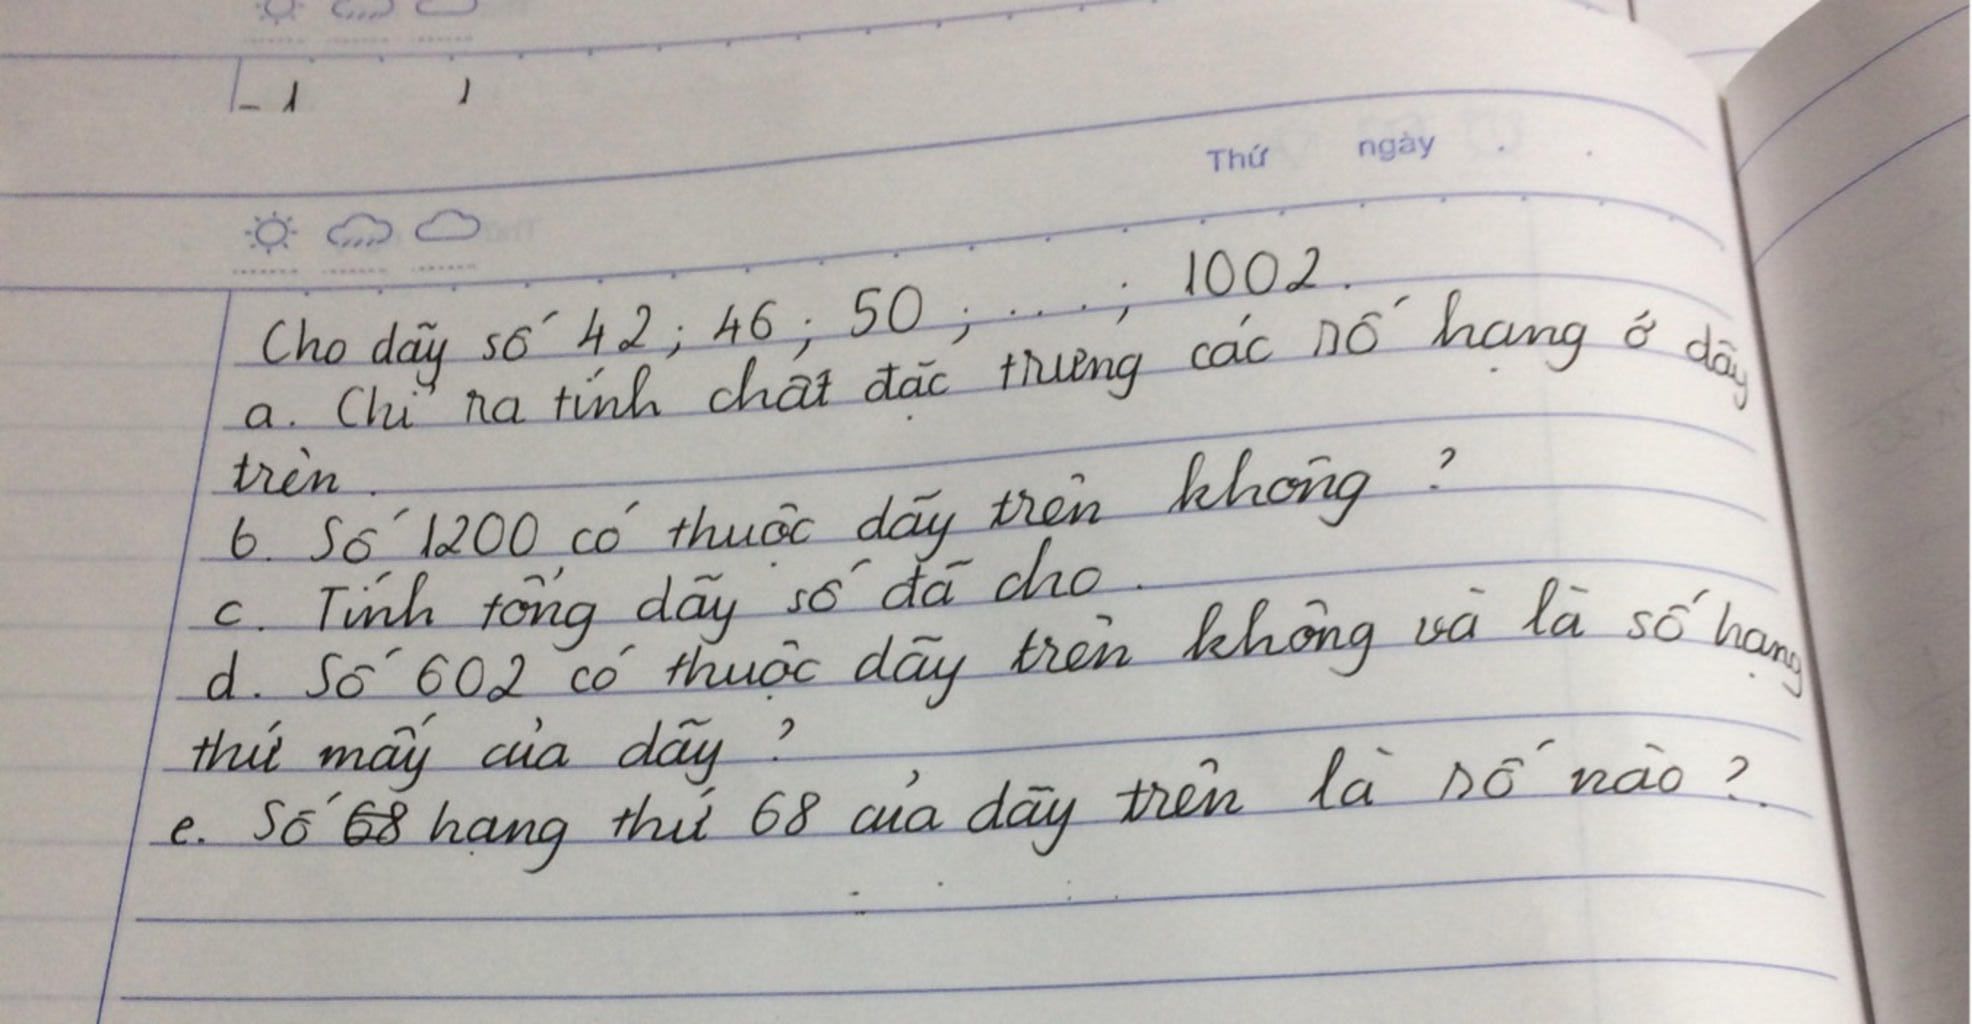 Thứ ngày
Cho dãy số 42; 46; 50; ....; 1002.
a. Chỉ ra tính chất đặc trưng các số hạng ở dãy
trên.
b. Số 1200 có thuộc dãy trên không?
c. Tính tổng dãy số đã cho.
d. Số 602 có thuộc dãy trên không và là số hạng
thứ mấy của dãy?
e. Số 68 hạng thứ 68 của dãy trên là số nào?